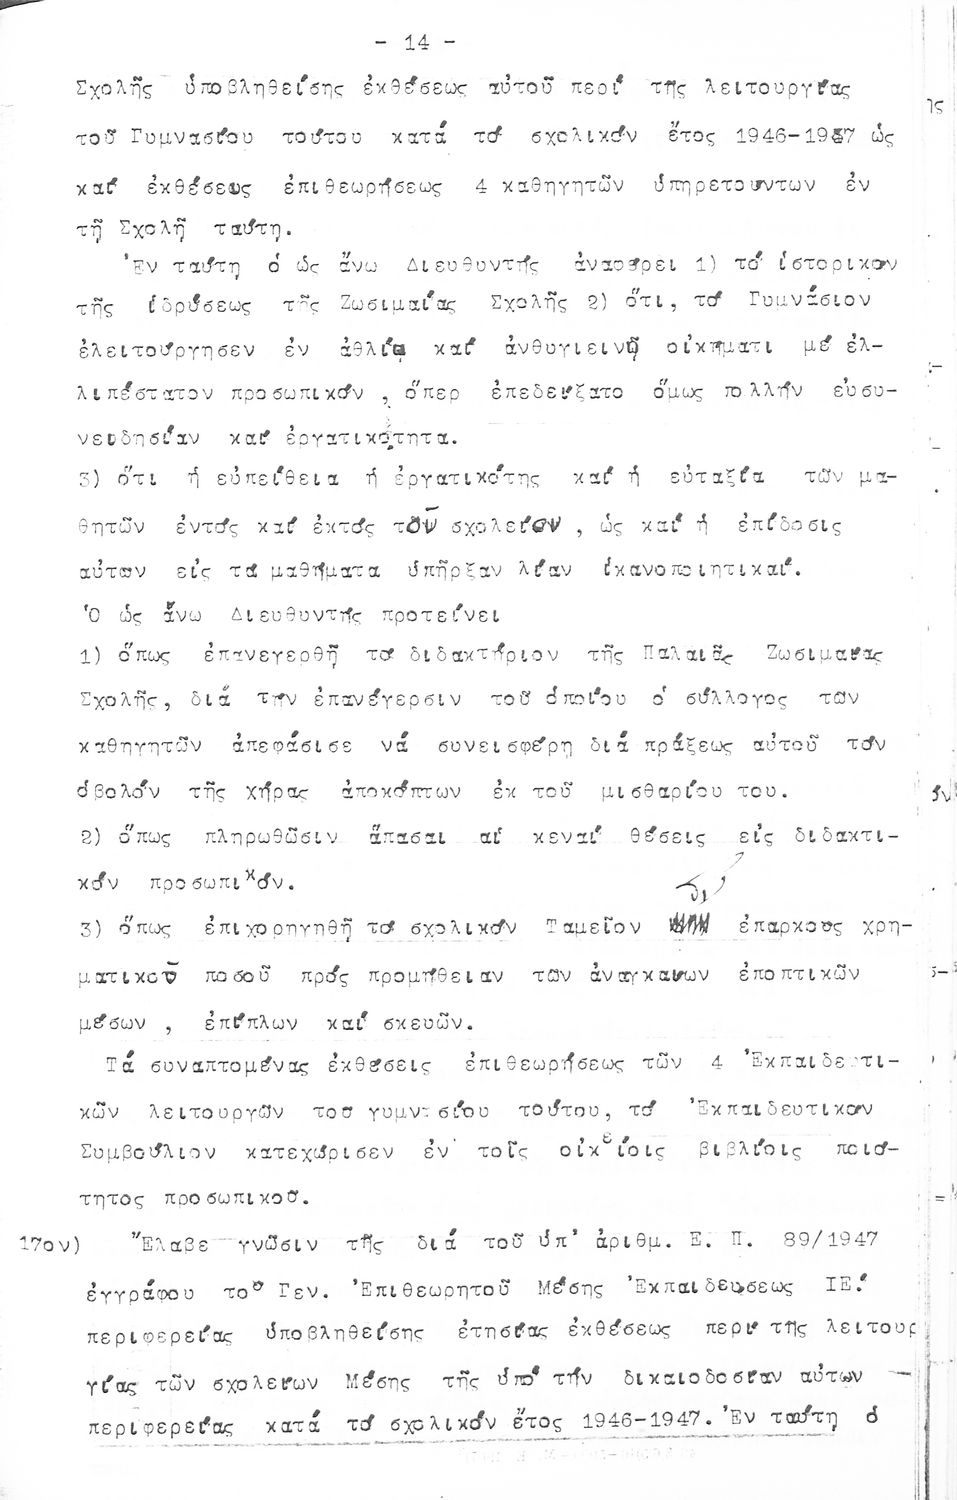 - 14 -
Σχολῆς ὑποβληθείσης ἐκθέσεως αὐτοῦ περί τῆς λειτουργίας
τοῦ Γυμνασίου τούτου κατά τό σχολικόν ἔτος 1946-1947 ὡς
καί ἐκθέσεως ἐπιθεωρήσεως 4 καθηγητῶν ὑπηρετούντων ἐν
τῇ Σχολῇ ταύτῃ.
Ἐν ταύτῃ ὁ ὡς ἄνω Διευθυντής ἀναφέρει 1) τό ἱστορικόν
τῆς ἱδρύσεως τῆς Ζωσιμαίας Σχολῆς 2) ὅτι, τό Γυμνάσιον
ἐλειτούργησεν ἐν ἀθλίῳ καί ἀνθυγιεινῷ οἰκήματι μέ ἐλ-
λιπέστατον προσωπικόν , ὅπερ ἐπεδείξατο ὅμως πολλήν εὐσυ-
νειδησίαν καί ἐργατικότητα.
3) ὅτι ἡ εὐπείθεια ἡ ἐργατικότης καί ἡ εὐταξία τῶν μα-
θητῶν ἐντός καί ἐκτός τοῦ σχολείου , ὡς καί ἡ ἐπίδοσις
αὐτῶν εἰς τά μαθήματα ὑπῆρξαν λίαν ἱκανοποιητικαί.
Ὁ ὡς ἄνω Διευθυντής προτείνει
1) ὅπως ἐπανεγερθῇ τό διδακτήριον τῆς Παλαιᾶς Ζωσιμαίας
Σχολῆς, διά τήν ἐπανέγερσιν τοῦ ὁποίου ὁ σύλλογος τῶν
καθηγητῶν ἀπεφάσισε νά συνεισφέρῃ διά πράξεως αὐτοῦ τόν
ὀβολόν τῆς χήρας ἀποκόπτων ἐκ τοῦ μισθαρίου του.
2) ὅπως πληρωθῶσιν ἅπασαι αἱ κεναί θέσεις εἰς διδακτι-
κόν προσωπικόν.
3) ὅπως ἐπιχορηγηθῇ τό σχολικόν Ταμεῖον δι' ἐπαρκοῦς χρη-
ματικοῦ ποσοῦ πρός προμήθειαν τῶν ἀναγκαίων ἐποπτικῶν
μέσων , ἐπίπλων καί σκευῶν.
Τά συναπτομένας ἐκθέσεις ἐπιθεωρήσεως τῶν 4 Ἐκπαιδευτι-
κῶν λειτουργῶν τοῦ γυμνασίου τούτου, τό Ἐκπαιδευτικόν
Συμβούλιον κατεχώρισεν ἐν τοῖς οἰκείοις βιβλίοις ποιό-
τητος προσωπικοῦ.
17ον) Ἔλαβε γνῶσιν τῆς διά τοῦ ὑπ' ἀριθμ. Ε. Π. 89/1947
ἐγγράφου τοῦ Γεν. Ἐπιθεωρητοῦ Μέσης Ἐκπαιδεύσεως ΙΕ.'
περιφερείας ὑποβληθείσης ἐτησίας ἐκθέσεως περί τῆς λειτουρ
γίας τῶν σχολείων Μέσης τῆς ὑπό τήν δικαιοδοσίαν αὐτῶν —
περιφερείας κατά τό σχολικόν ἔτος 1946-1947. Ἐν ταύτῃ ὁ